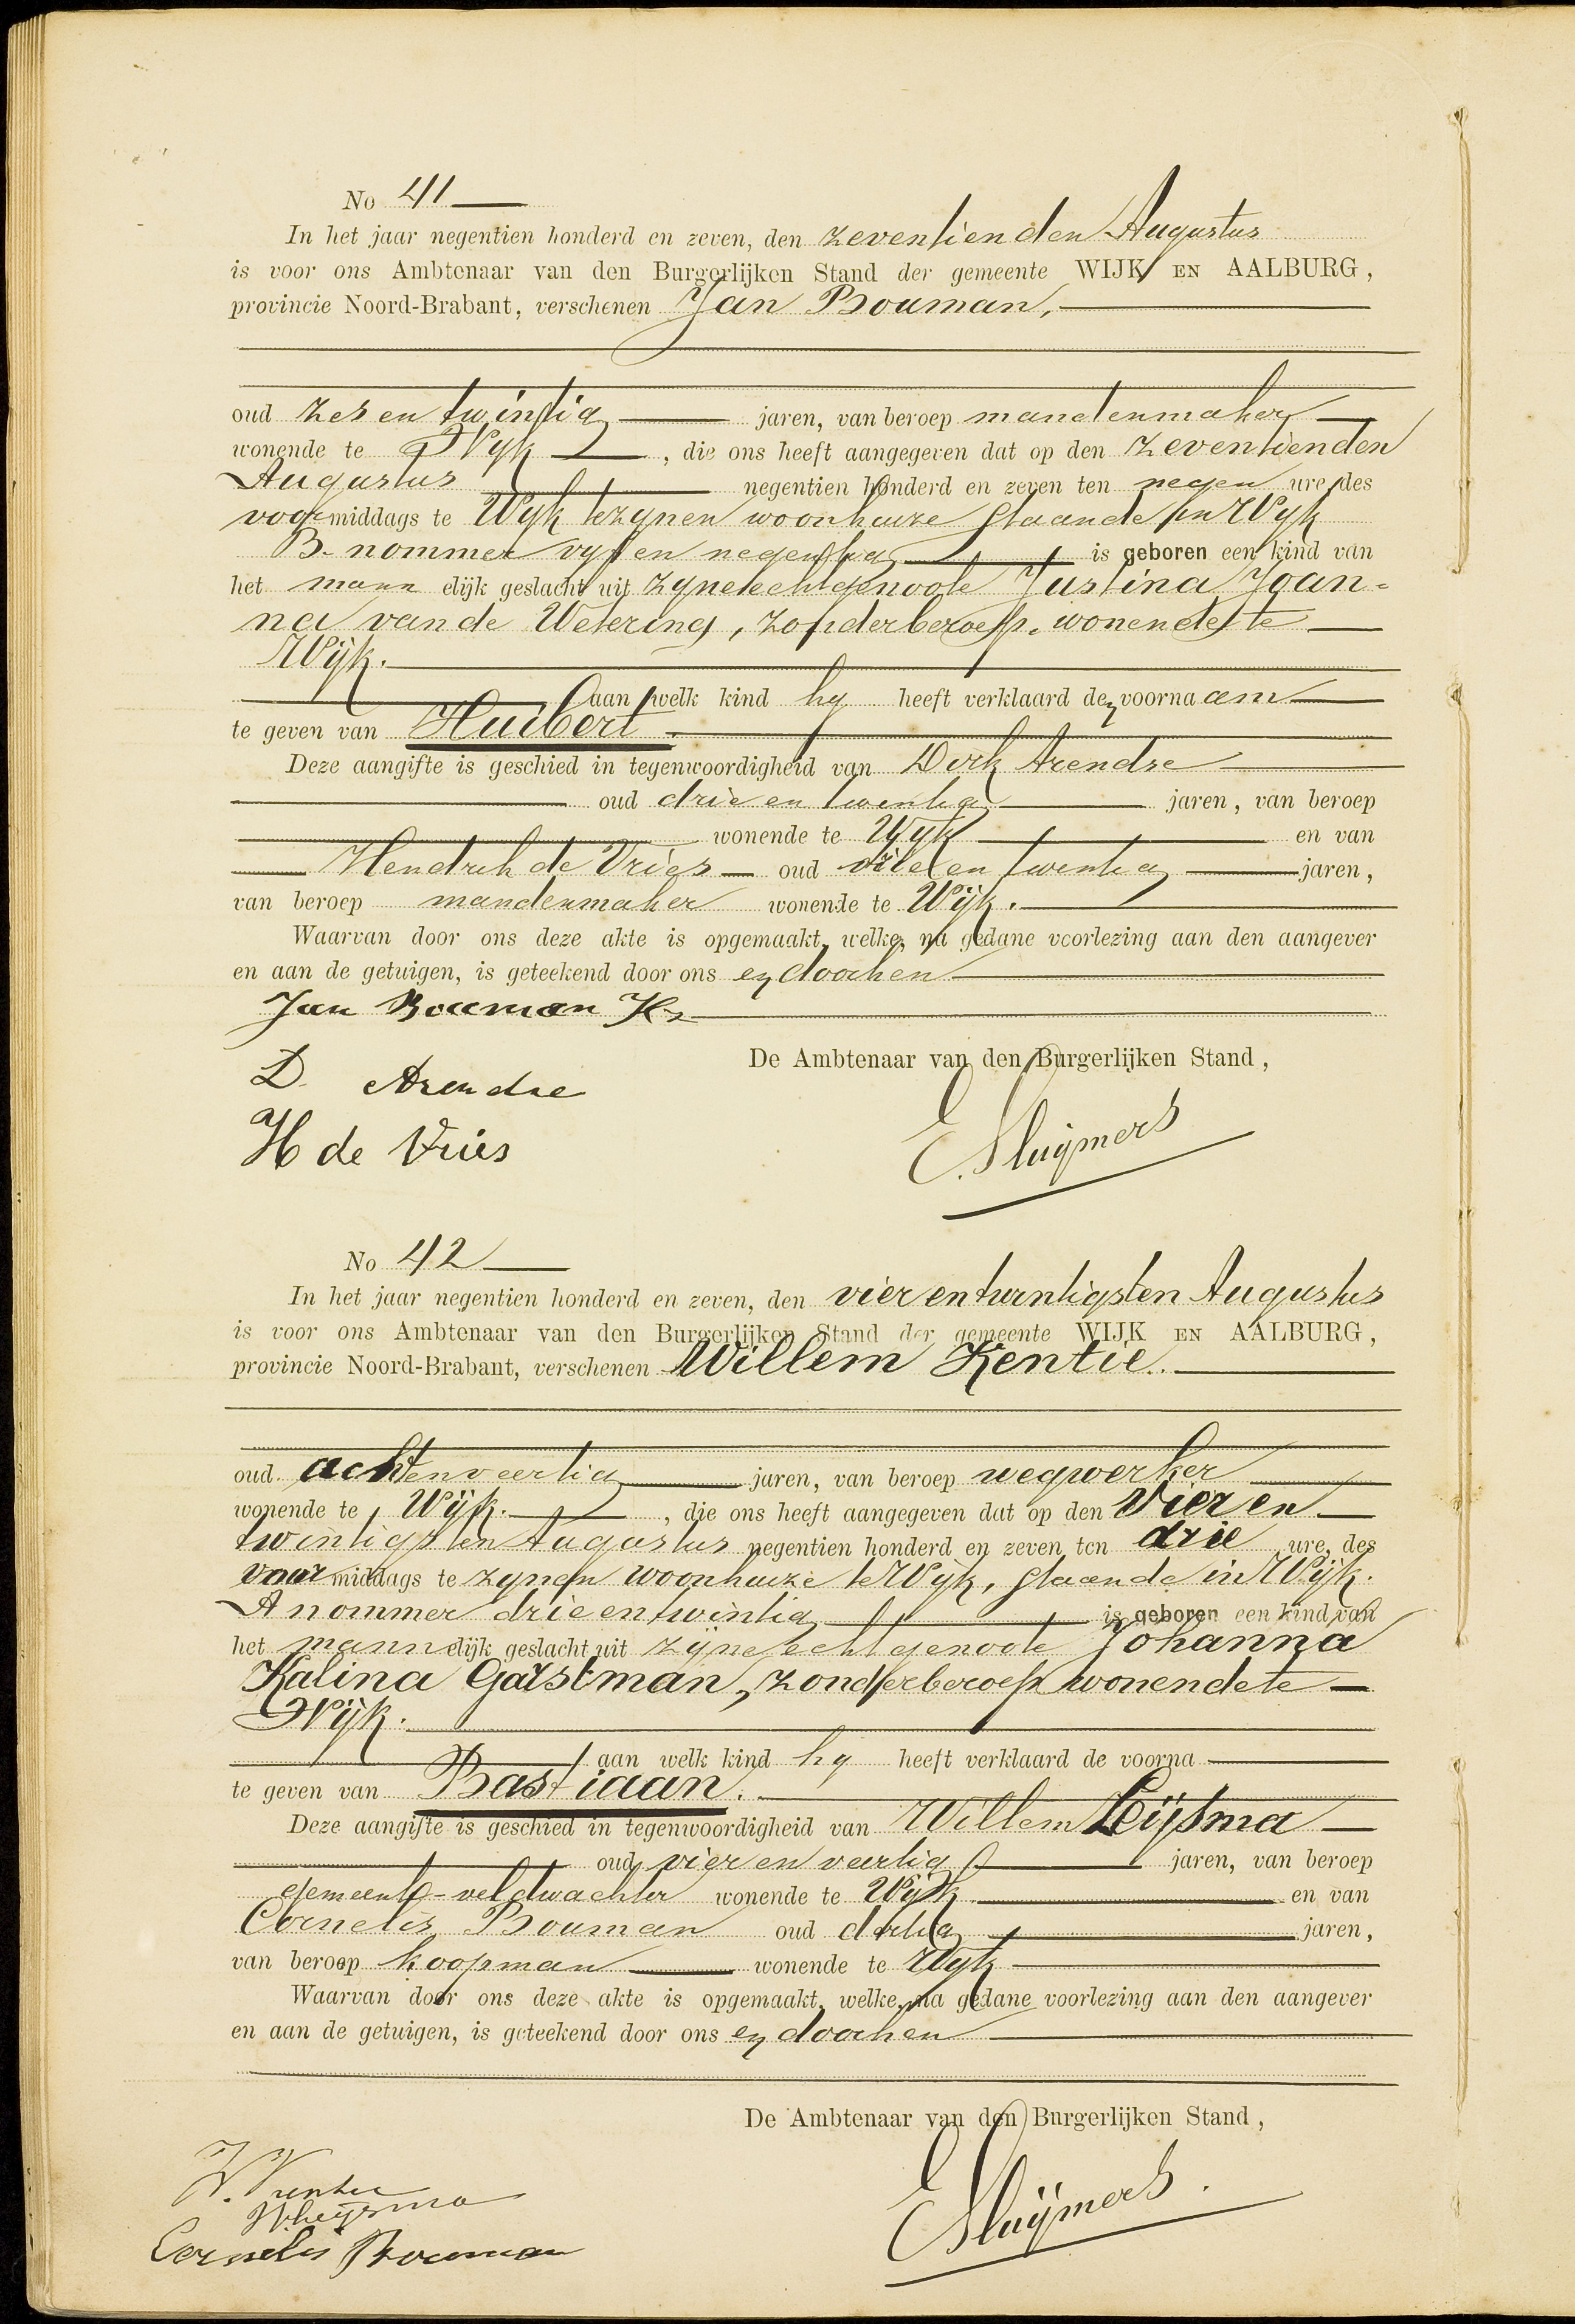 No 41
In het jaar negentien honderd en zeven, den zeventienden Augustus
is voor ons Ambtenaar van den Burgerlijken Stand der gemeente WIJK EN AALBURG,
provincie Noord-Brabant, verschenen Jan Bouman,
oud zes en twintig jaren, van beroep mandenmaker
wonende te Wijk, die ons heeft aangegeven dat op den zeventienden
Augustus negentien honderd en zeven ten negen ure, des
voormiddags te Wijk te zynen woonhuize staande in Wijk
B. nommer vyf en negentig is geboren een kind van
het mannelijk geslacht uit zyne echtgenoote Justina Joan=
na van de Wetering, zonder beroep, wonende te
Wijk.
aan welk kind hy heeft verklaard den voornaam
te geven van Huibert.
Deze aangifte is geschied in tegenwoordigheid van Dirk Arendse
oud drie en twintig jaren, van beroep
wonende te Wijk en van
Hendrik de Vries oud en twintig jaren,
van beroep mandenmaker wonende te Wijk.
Waarvan door ons deze akte is opgemaakt, welke, na gedane voorlezing aan den aangever
en aan de getuigen, is geteekend door ons en door hen
Jan Bouman Hz
De Ambtenaar van den Burgerlijken Stand,
D. Arendse
H de Vries
E. Sluijmers
No 42
In het jaar negentien honderd en zeven, den vier en twintigsten Augustus
is voor ons Ambtenaar van den Burgerlijken Stand der gemeente WIJK EN AALBURG,
provincie Noord-Brabant, verschenen Willem Kentie.
oud acht en veertig jaren, van beroep wegwerker
wonende te Wijk., die ons heeft aangegeven dat op den vier en
twintigsten Augustus negentien honderd en zeven ten drie ure, des
voormiddags te zynen woonhuize te Wijk, staande in Wijk.
A nommer drie en twintig is geboren een kind van
het mannelijk geslacht uit zijne echtgenoote Johanna
Kalina Garstman, zonder beroep wonende te
Wijk.
aan welk kind hy heeft verklaard de voorna
te geven van Bastiaan.
Deze aangifte is geschied in tegenwoordigheid van Willem Leijsma
oud vier en veertig jaren, van beroep
gemeente-veldwachter wonende te Wijk en van
Cornelis Bouman oud dertig jaren,
van beroep koopman wonende te Wyk
Waarvan door ons deze akte is opgemaakt, welke, na gedane voorlezing aan den aangever
en aan de getuigen, is geteekend door ons en door hen
De Ambtenaar van den Burgerlijken Stand,
W. Kentie
W Leijsma
Cornelis Bouman
E Sluijmers.